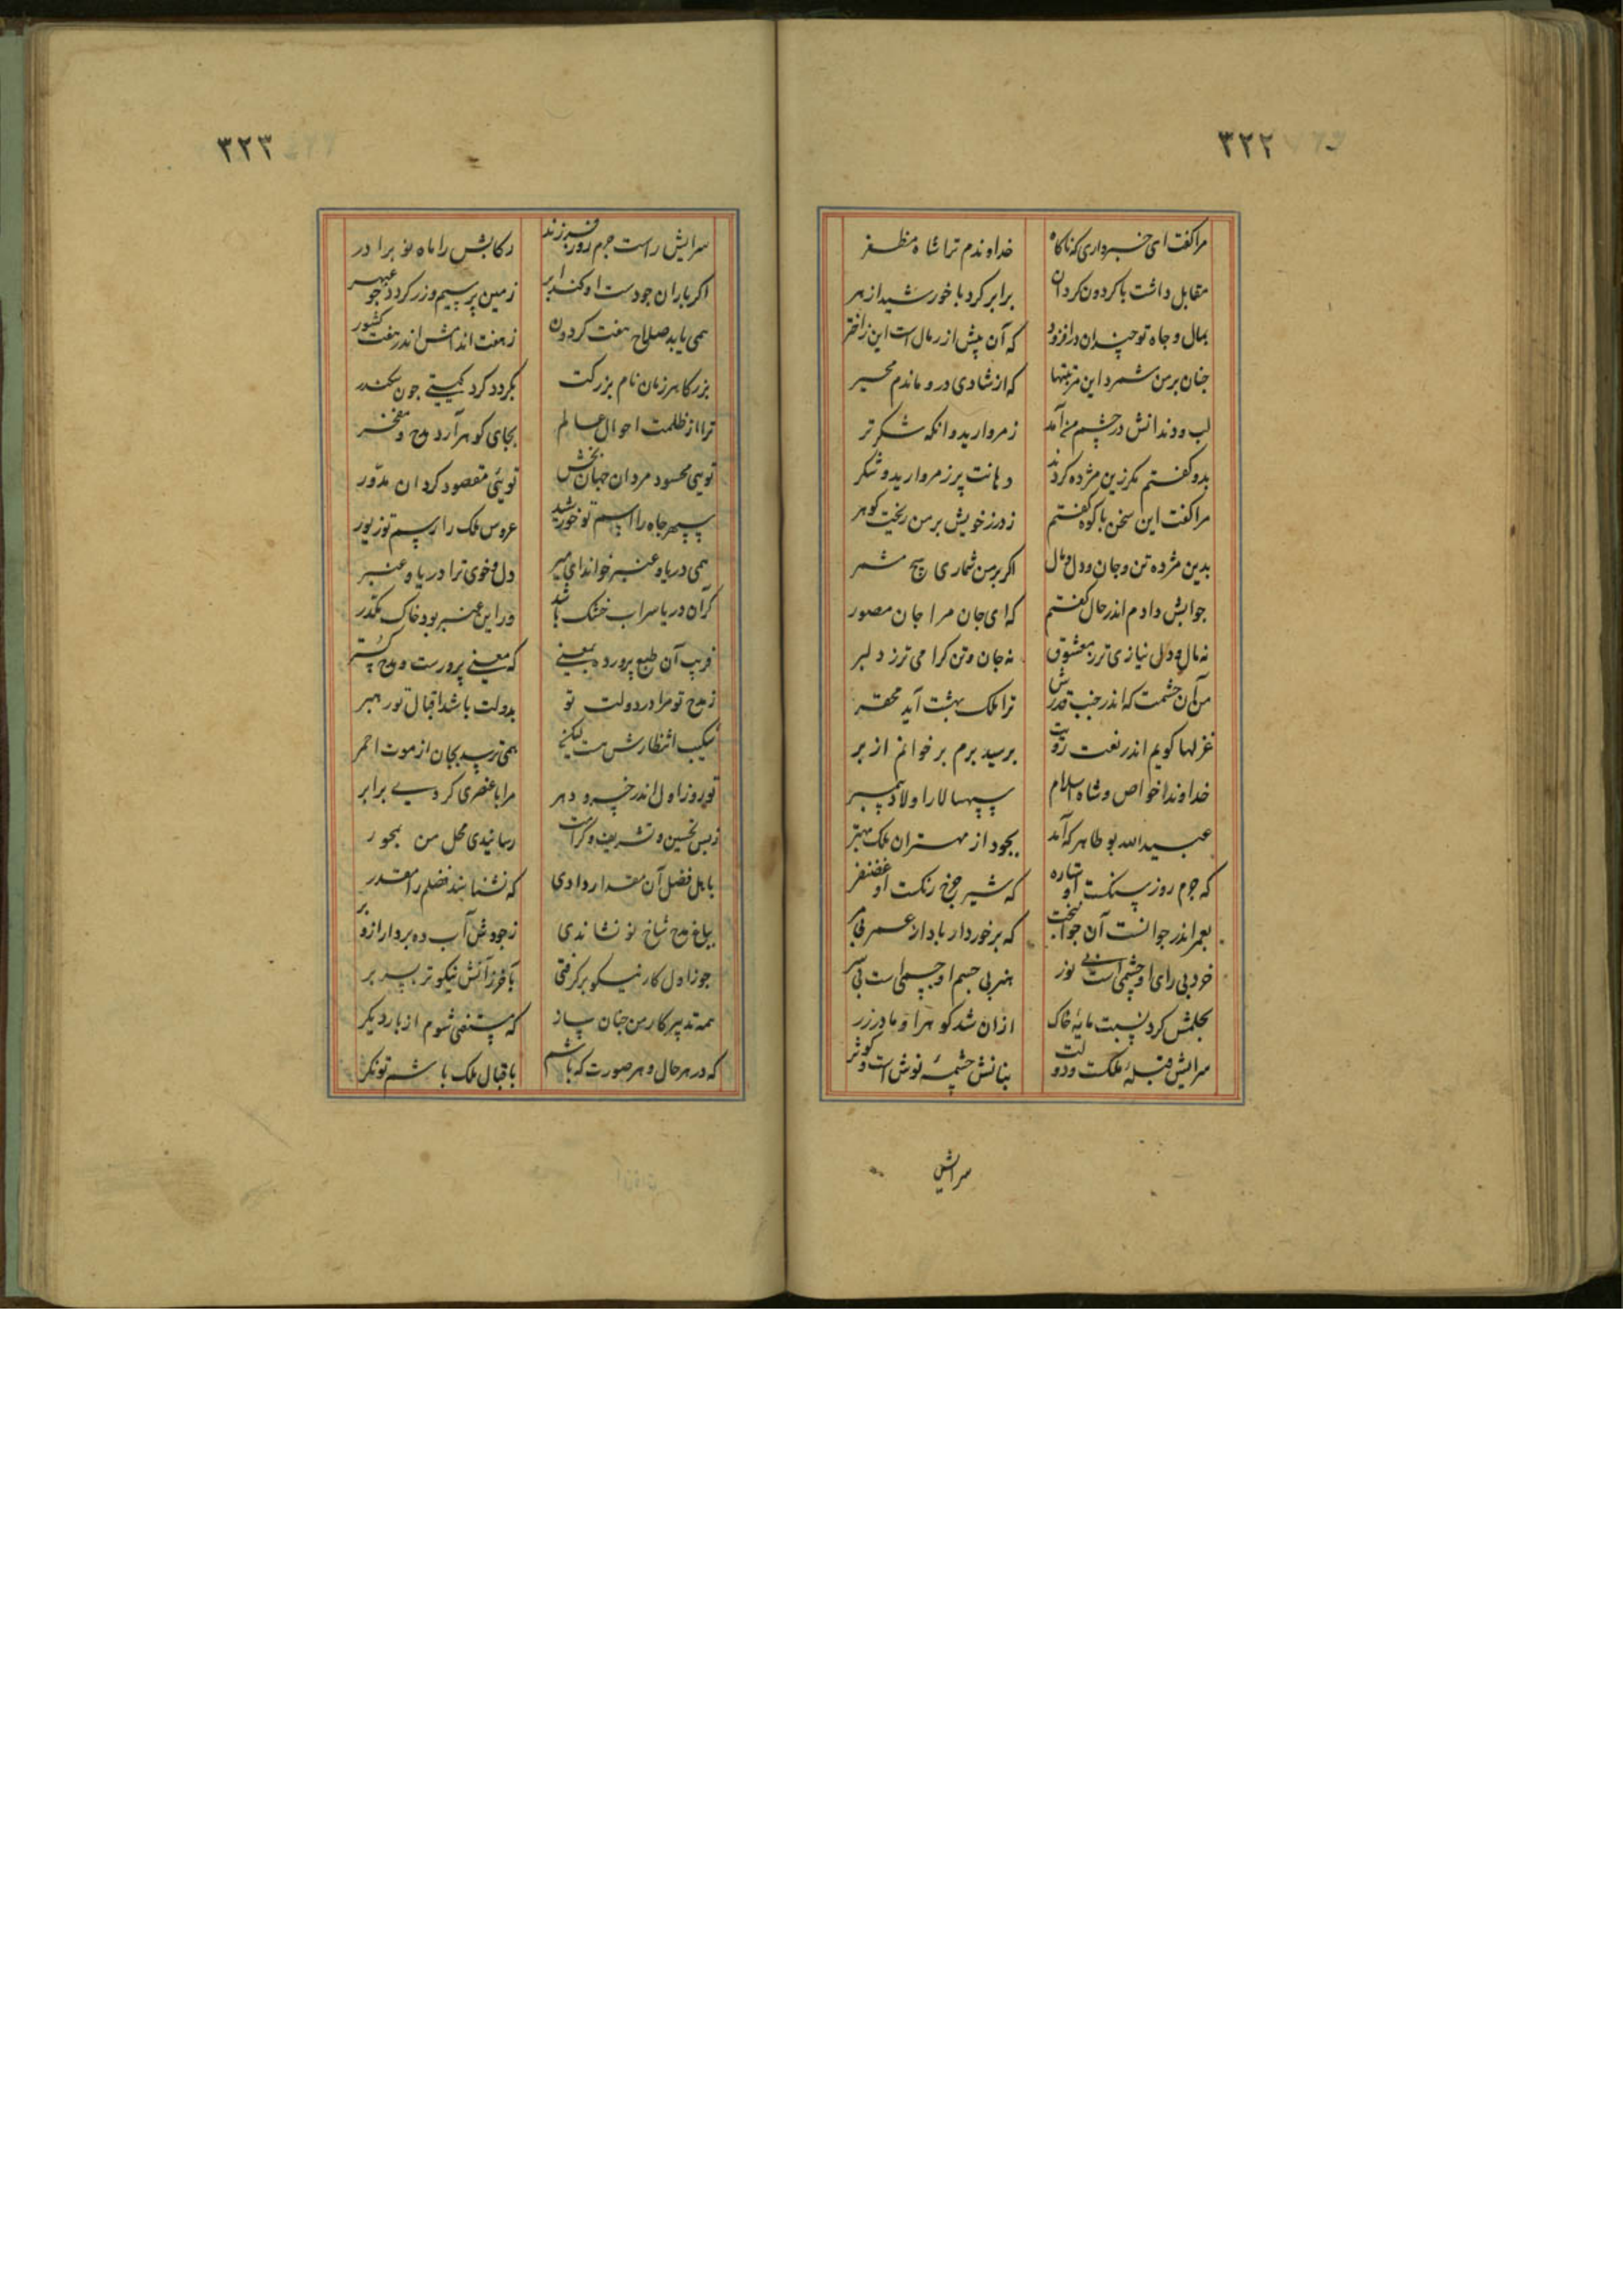 ۳۲۲
مرا گفت ای خبر داری که ناکاه خداوندم ترا شاه مظفر
مقابل داشت با کردون کردان برابر کرد با خورشید ازهر
بمال و جاه تو چندان درافزود که آن بیش از رمال است این ز اختر
جنان بر من شمرد این مرتبتها که از شادی درو ماندم محیر
لب و دندانش در چشم من آمد ز مروارید وانکه شکر تر
بدو کفتم مکر زین مژده کردند دهانت پر ز مروارید و شکر
مرا کفت این سخن با کوه کفتم ز درز خویش بر من ریخت کوهر
بدین مژده تن و جان و دل و مال اکر بر من شماری هیچ مشمر
جوابش دادم اندر حال کفتم که ای جان مرا جان مصور
نه مال و دل نیازی تر ز معشوق نه جان و تن کرامی تر ز دلبر
من آن حشمت که اندر جنب قدرش ترا ملک بهشت آید محقر
غزلها کویم اندر نعت رویت بر سید برم بر خوانم از بر
خداوندا خواص و شاه اسلام سپهسالار اولاد پیمبر
عبیدالله بو طاهر که آمد بجود از مهتران ملک مهتر
که جرم روز سنکست او ستاره که شیر چرخ رنکست او غضنفر
بعمر اندر جوانست آن جوانبخت که برخوردار باد از عمر بی مر
خرد بی رای او چشمی است بی نور هنر بی جسم او جسمی است بی سر
بحلمش کرد نسبت مایه خاک از ان شد کوهر او مادر زر
سرایش قبله ملکت و دولت بنانش چشمه نوش است و کوثر
سرایش
۳۲۳
سرایش راست جرم روز فرزند رکابش را ماه نو برادر
اکر باران جود ست او کند ابر زمین پر سیم و زر کردد جو عبهر
همی یابد صلاح هفت کردون ز هفت اندامش اندر هفت کشور
بزرکا هر زمان نام بزرکت بکردد کرد کیتی جون سکندر
ترا از ظلمت احوال عالم بجای کوهر آرد مدح و مفخر
تویی محسود مردان جهان بخش تویی مقصود کردان مدور
سپهر جاه را اسم تو خورشید عروس ملک را رسم تو زیور
همی دریا و عنبر خواند ای میر دل و خوی ترا دریا و عنبر
کر آن دریا سراب خشک باشد ور این عنبر بود خاک مکدر
فریب آن طبع پرورده بمعنی که معنی پرورست و مدح کستر
ز مدح تو مرا در دولت تو بدولت باشد اقبال تو رهبر
شکیب انتظارش هست لیکن همی ترسد بجان از موت احمر
تو روز اول اندر خسرو دهر مرا با عنصری کردی برابر
ز بس تحسین و تشریف و کرامت رسانیدی محل من بمحور
باهل فضل آن مقدار دادی که نشناسند فضلم را مقدر
بباغ مدح شاخ نو نشاندی ز جودش آب ده بردار ازو بر
جو از اول کار نیکو برکرفتی بآخر ز آتش نیکوتر بسر بر
همه تدبیر کار من جنان ساز که مستغنی شوم از بار دیکر
که در هر حال و هر صورت که باشم باقبال ملک باشم توانکر